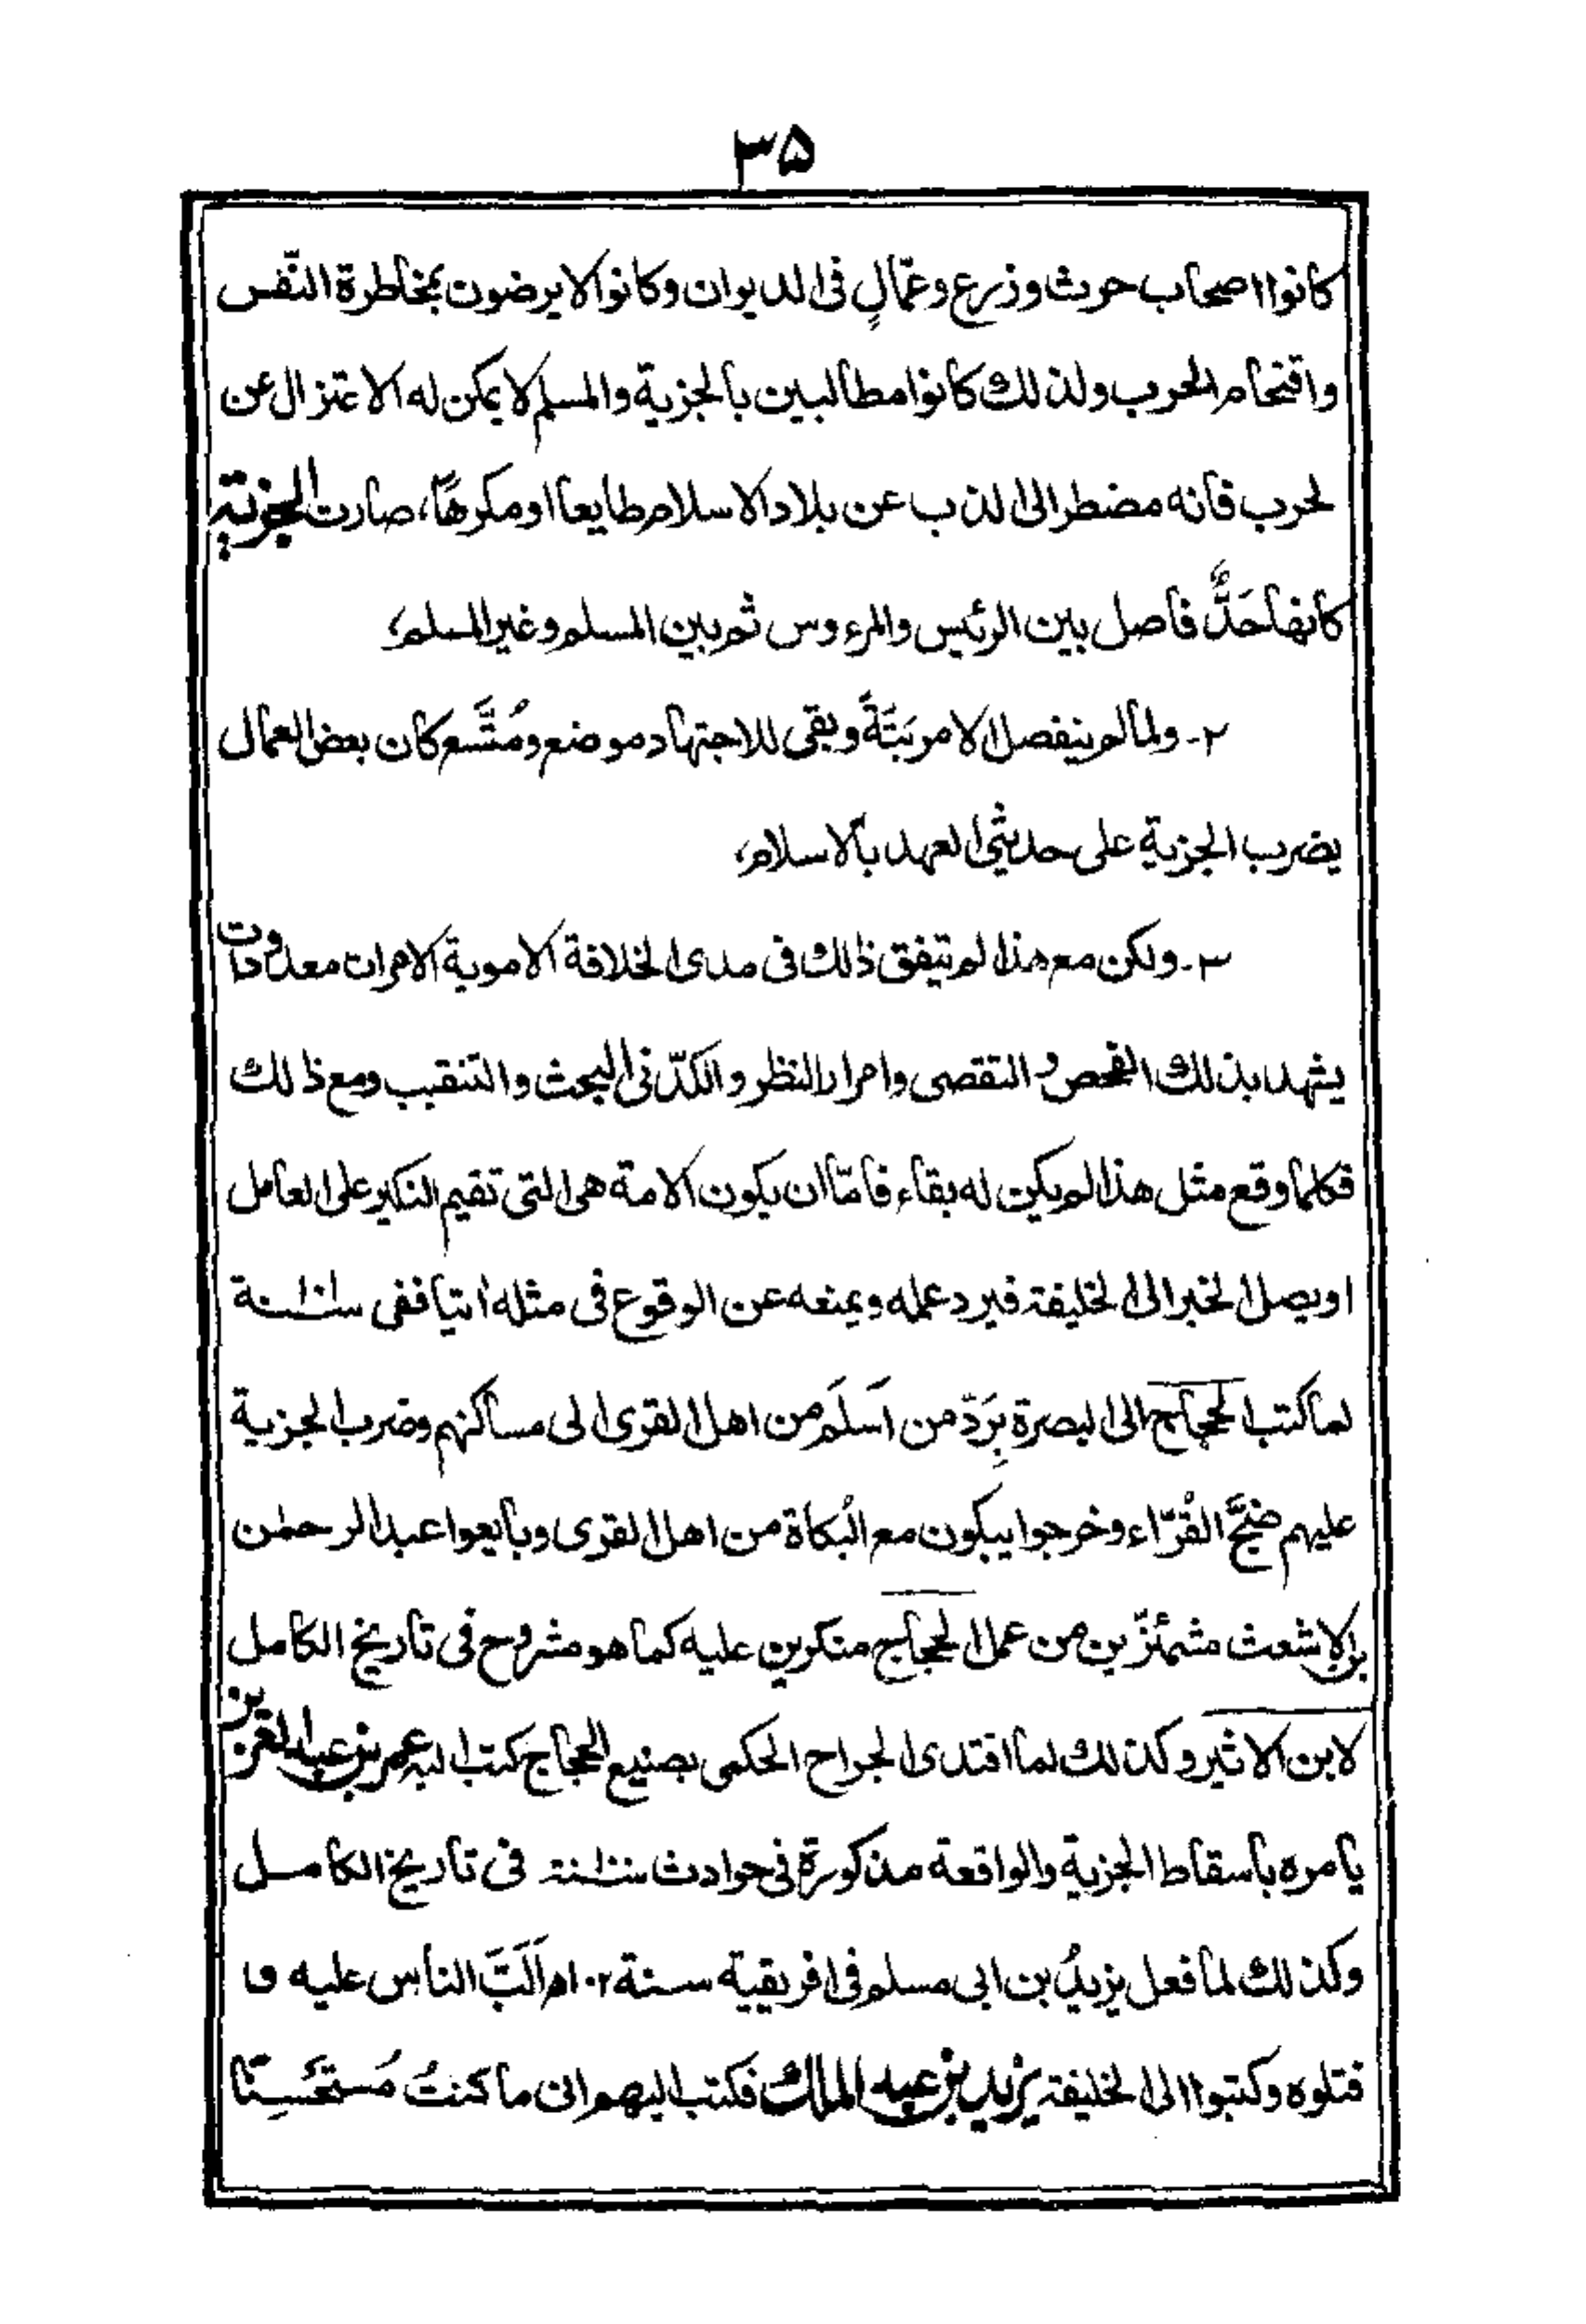 ٣٥
كانوا اصحاب حرث وزرع وعمّالٍ فى الديوان وكانوا لا يرضون بمخاطرة النّفس
واقتحام الحرب ولذلك كانوا مطالبين بالجزية والمسلم لا يمكن له الاعتزال عن
لحرب فانه مضطر الى الذب عن بلاد الاسلام طايعا او مكرهًا، صارت الجزية
كانها حَدٌّ فاصل بين الرئيس والمرءوس ثم بين المسلم وغير المسلم،
٢- ولما لم ينفصل الامر بَتَّةً وبقى للاجتهاد موضع ومُتَّسع كان بعض العمال
يضرب الجزية على حديثى العهد بالاسلام،
٣- ولكن مع هذا لم يتفق ذلك فى مدى الخلافة الاموية الا مرات معدودات
يشهد بذلك الفحص والتقصى وامرار النظر والكدّ فى البحث والتنقيب ومع ذلك
فكلما وقع مثل هذا لم يكن له بقاء فامّا ان يكون الامة هى التى تقيم النكير على العامل
او يصل الخبر الى الخليفة فيرد عمله ويمنعه عن الوقوع فى مثله اتيا ففى سنة
لما كتب الحجاج الى البصرة بِرَدّ من اَسلَم من اهل القرى الى مساكنهم وضرب الجزية
عليهم ضَجَّ القُرّاء وخرجوا يبكون مع البُكاة من اهل القرى وبايعوا عبد الرحمٰن
بن الاشعث مشمئزّين من عمل الحجاج منكرين عليه كما هو مشروح فى تاريخ الكامل
لابن الاثير وكذلك لما اقتدى الجراح الحكمى بصنيع الحجاج كتب اليه عمر بن عبد العزيز
يامره باسقاط الجزية والواقعة مذكورة فى حوادث سنة فى تاريخ الكامل
وكذلك لما فعل يزيدُ بن ابى مسلم فى افريقية سنة ١٠٢ه اَلَبَّ الناس عليه و
قتلوه وكتبوا الى الخليفة يزيد بن عبد الملك فكتب اليهم انى ما كنتُ مُستَحسِنًا